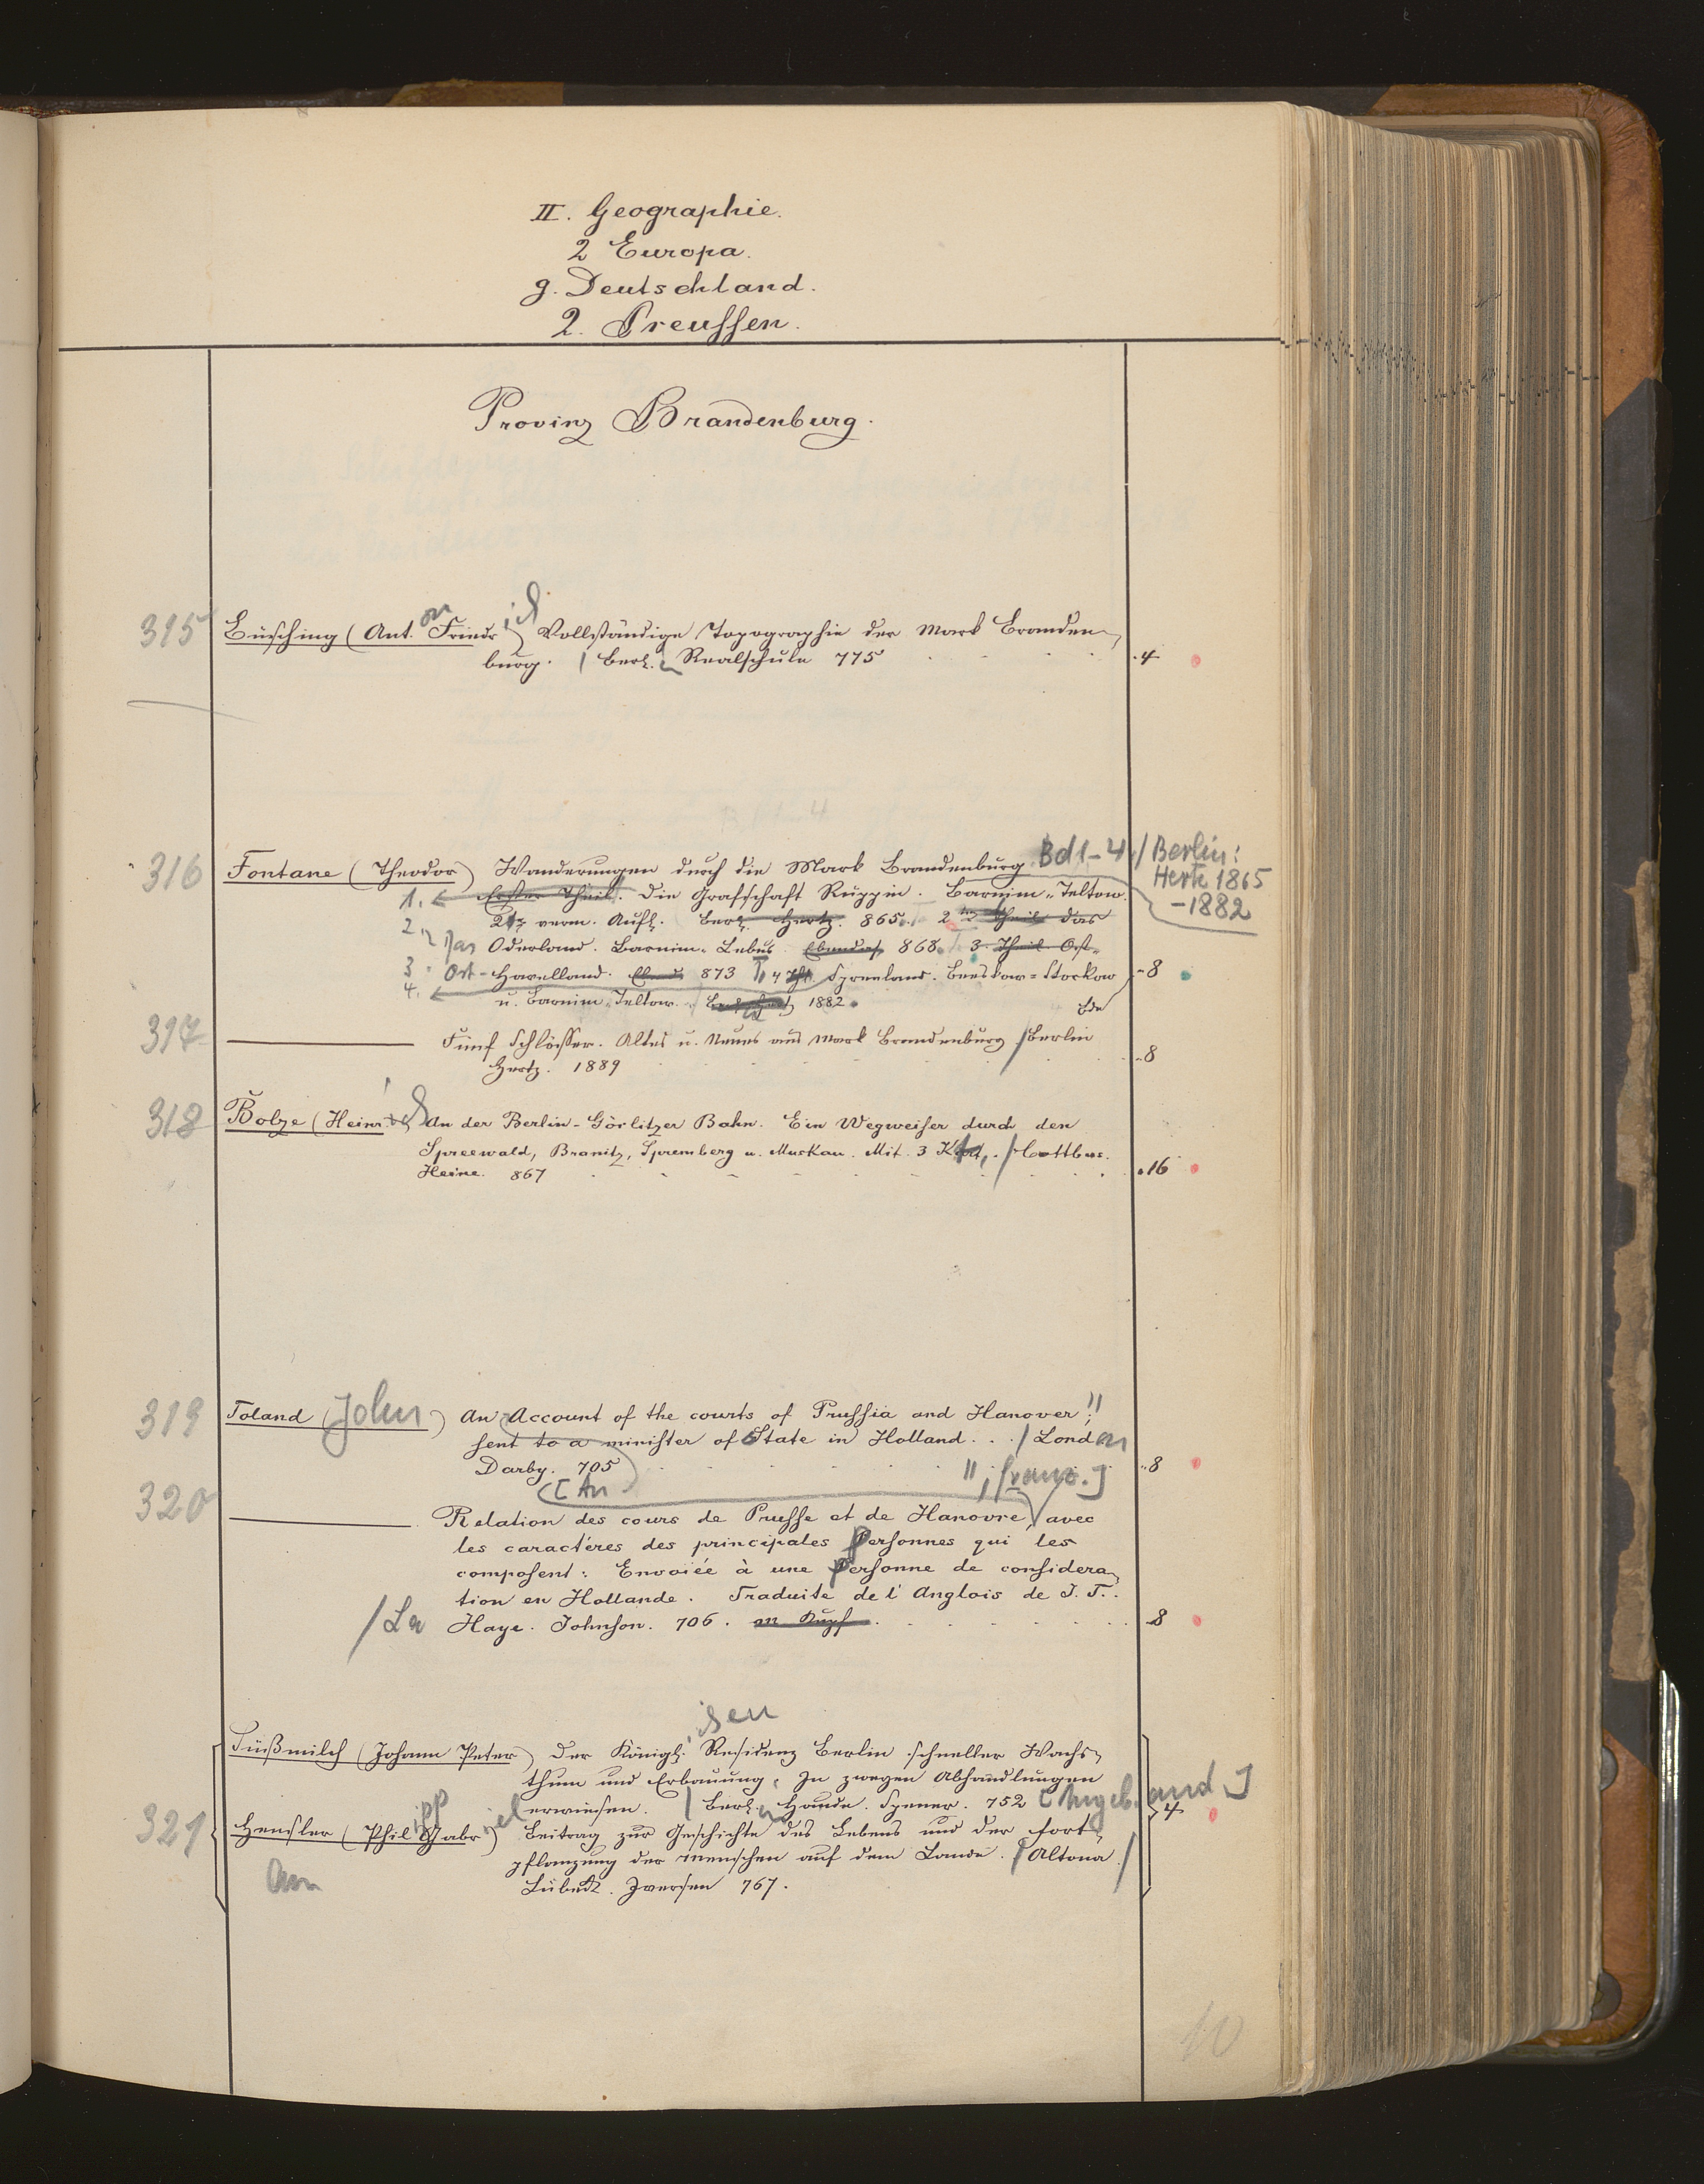 II. Geographie.
2 Europa.
g. Deutschland.
2. Preussen.
Provinz Brandenburg.
315 Büsching (Ant.on Friedrich) Vollständige Topographie der Mark Branden-
burg. / Berlin Realschule 775 4
316 Fontane (Theodor) Wanderungen durch die Mark Brandenburg Bd 1-4 / Berlin:
Hertz 1865
-1882
1. Erster Theil. Die Grafschaft Ruppin. Barnim-Teltow.
2te verm. Aufl. Berl. Hertz. 865. 2ter Theil das
2. Das Oderland. Barnim-Lebus. Ebendas. 868. 3. Theil Ost-
3. Ost-Havelland. Ebend. 873 4 Thl. Spreeland. Beeskow-Storkow 8
4. u. Barnim-Teltow. 1882. Bde
317 ——— Fünf Schlösser. Altes u. Neues aus Mark Brandenburg / Berlin
Hertz. 1889 8
318 Bolze (Heinrich) An der Berlin-Görlitzer Bahn. Ein Wegweiser durch den
Spreewald, Branitz, Spremberg u. Muskau. Mit 3 Kt. / Cottbus.
Heine. 867 16
319 Toland (John) An Account of the courts of Prussia and Hanover;
sent to a minister of State in Holland... / London
Darby. 705 8
[An " , franz.]
320 ——— Relation des cours de Prusse et de Hanovre, avec
les caractéres des principales Personnes qui les
composent: Envoiée à une Personne de considera-
tion en Hollande. Traduite de l'Anglois de J. T.
/ La Haye. Johnson. 706. m. Kupf. 8
Süßmilch (Johann Peter) Der Königl.ichen Residenz Berlin schneller Wachs-
thum und Erbauung, In zweyen Abhandlungen
erwiesen. / Berlin Haude. Spener. 752 [Angeb. and.] 4
321 Hensler (Philipp Gabriel) Beitrag zur Geschichte des Lebens und der Fort-
pflanzung der Menschen auf dem Lande. / Altona /
Lübeck. Iversen 767.
10